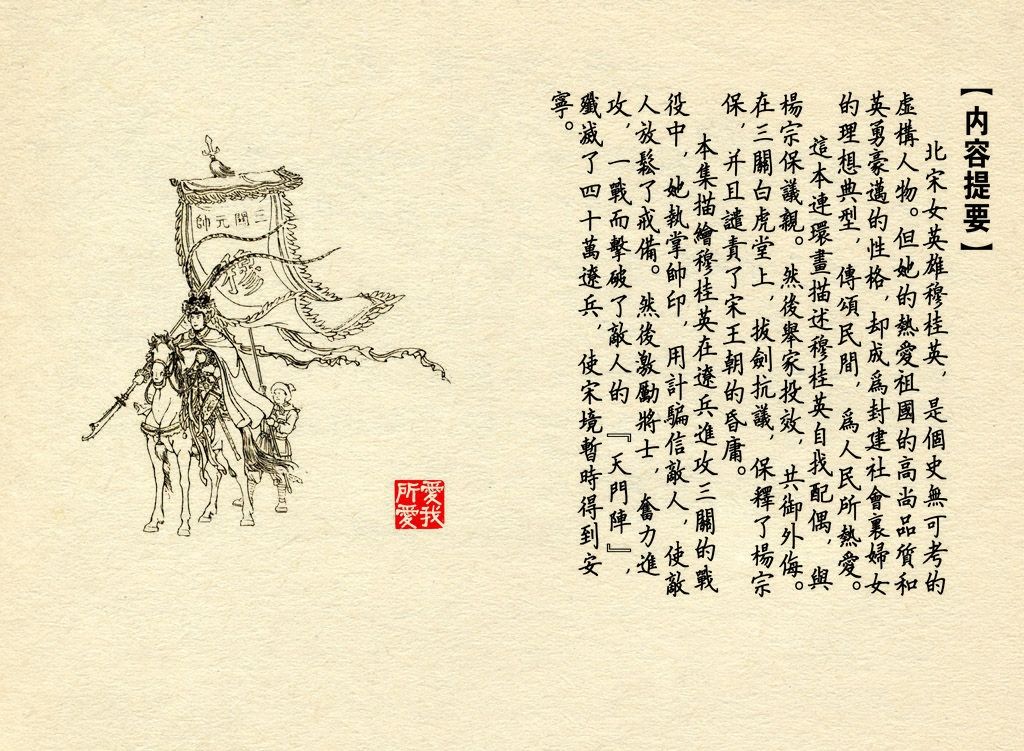 【内容提要】
北宋女英雄穆桂英，是個史無可考的
虛構人物。但她的熱愛祖國的高尚品質和
英勇豪邁的性格，却成爲封建社會裏婦女
的理想典型，傳頌民間，爲人民所熱愛。
這本連環畫描述穆桂英自找配偶，與
楊宗保議親。然後舉家投效，共御外侮。
在三關白虎堂上，拔劍抗議，保釋了楊宗
保，并且譴責了宋王朝的昏庸。
本集描繪穆桂英在遼兵進攻三關的戰
役中，她執掌帥印，用計騙信敵人，使敵
人放鬆了戒備。然後激勵將士，奮力進
攻，一戰而擊破了敵人的『天門陣』，
殲滅了四十萬遼兵，使宋境暫時得到安
寧。
三關元帥
穆
愛我
所愛